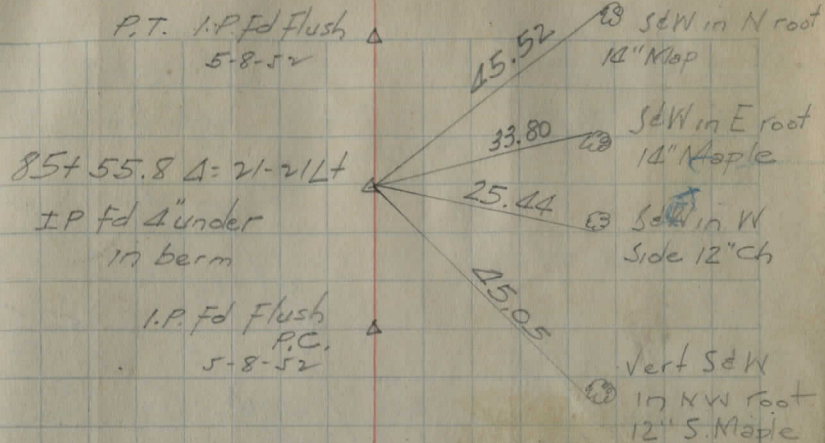 P.T. I.P. Fd Flush
5-8-52
85+55.8 Δ=21-21 Lt
IP Fd 4" under
in berm
I.P. Fd Flush
P.C.
5-8-52
45.52
33.80
25.44
45.05
S&W in N root
14" Map
S&W in E root
14" Maple
S&W in W
Side 12" Ch
Vert S&W
in NW root
12" S. Maple